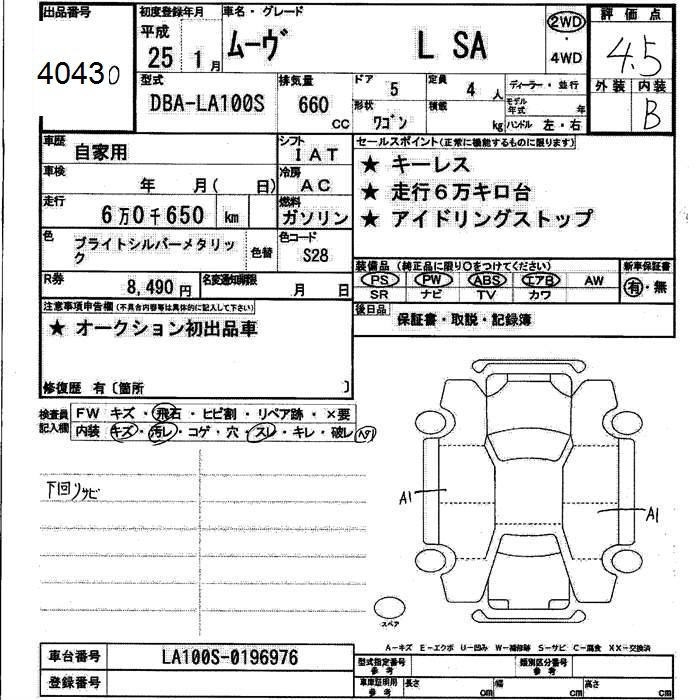 出品番号
40430
初度登録年月
平成
25 1月
車名・グレード
ムーヴ L SA
2WD
・
4WD
評価点
4.5
外装 内装
B
型式
DBA-LA100S
排気量
660
CC
ドア
5
定員
4 人
ディーラー・並行
形状
ワゴン
積載
kg
モデル年式 年
ハンドル 左・右
車歴
自家用
シフト
IAT
車検
年 月( 日)
冷房
AC
走行
6万0千650 km
燃料
ガソリン
色
ブライトシルバーメタリック
色替
色コード
S28
R券
8,490円
名変通知期限
月 日
セールスポイント(正常に機能するものに限ります)
★ キーレス
★ 走行6万キロ台
★ アイドリングストップ
装備品 (純正品に限り○をつけてください)
PS PW ABS エアB AW
SR ナビ TV カワ
新車保証書
有・無
後日品
保証書・取説・記録簿
注意事項申告欄(不具合内容等は具体的に記入して下さい)
★ オークション初出品車
修復歴 有〔箇所 〕
検査員記入欄
FW キズ・飛石・ヒビ割・リペア跡・×要
内装 キズ・汚レ・コゲ・穴・スレ・キレ・破レ
下回りサビ
A1
A1
スペア
A-キズ E-エクボ U-凹み W-補修跡 S-サビ C-腐食 XX-交換済
車台番号
LA100S-0196976
登録番号
型式指定番号
参考
類別区分番号
参考
車庫証明用
参考
長さ cm
幅 cm
高さ cm